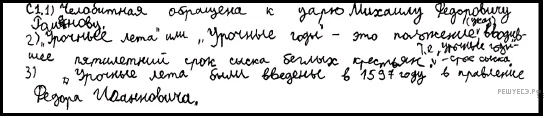 С1.1) Челобитная обращена к царю Михаилу Федоровичу
Романову. (указ)
2) "Урочные лета" или "Урочные годы" - это положение вводив-
шее пятилетний срок сыска беглых крестьян, т.е. "урочные годы" - срок сыска.
3) "Урочные лета" были введены в 1597 году в правление
Федора Иоанновича.
РЕШУЕГЭ.РФ